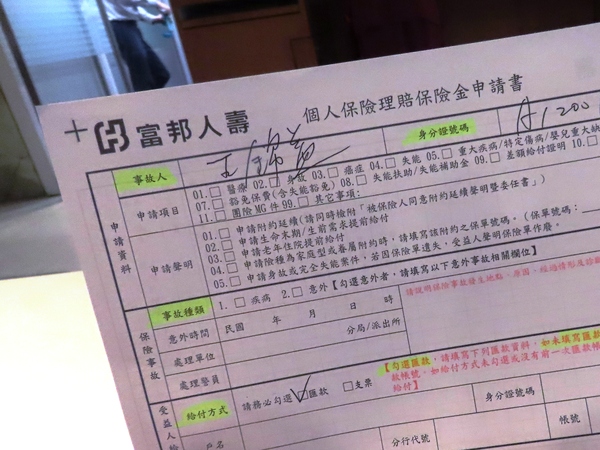 富邦人壽
個人保險理賠保險金申請書
事故人 王錦 身分證號碼 A1200
申請資料
申請項目
01.□ 醫療 02.□ 身故 03.□ 癌症 04.□ 失能 05.□ 重大疾病/特定傷病/嬰兒重大缺
07.□ 豁免保費(含失能豁免) 08.□ 失能扶助/失能補助金 09.□ 差額給付證明 10.□
11.□ 團險MG件 99.□ 其它事項:
申請聲明
01.□ 申請附約延續(請同時檢附「被保險人同意附約延續聲明暨委任書」)
02.□ 申請生命末期/生前需求提前給付
03.□ 申請老年住院提前給付
04.□ 申請險種為家庭型或眷屬附約時,請填寫該附約之保單號碼。(保單號碼:
05.□ 申請身故或完全失能案件,若因保險單遺失,受益人聲明保險單作廢。
保險事故
事故種類 1.□ 疾病 2.□ 意外【勾選意外者,請填寫以下意外事故相關欄位】
意外時間 民國 年 月 日 時
處理單位 分局/派出所
處理警員
請說明保險事故發生地點、原因、經過情形及診斷
受益人
給付方式 請務必勾選 ☑匯款 □支票
【勾選匯款,請填寫下列匯款資料,如未填寫匯款
款帳號,如給付方式未勾選或沒有前一次匯款帳
給付】
戶名 身分證號碼
分行代號 帳號